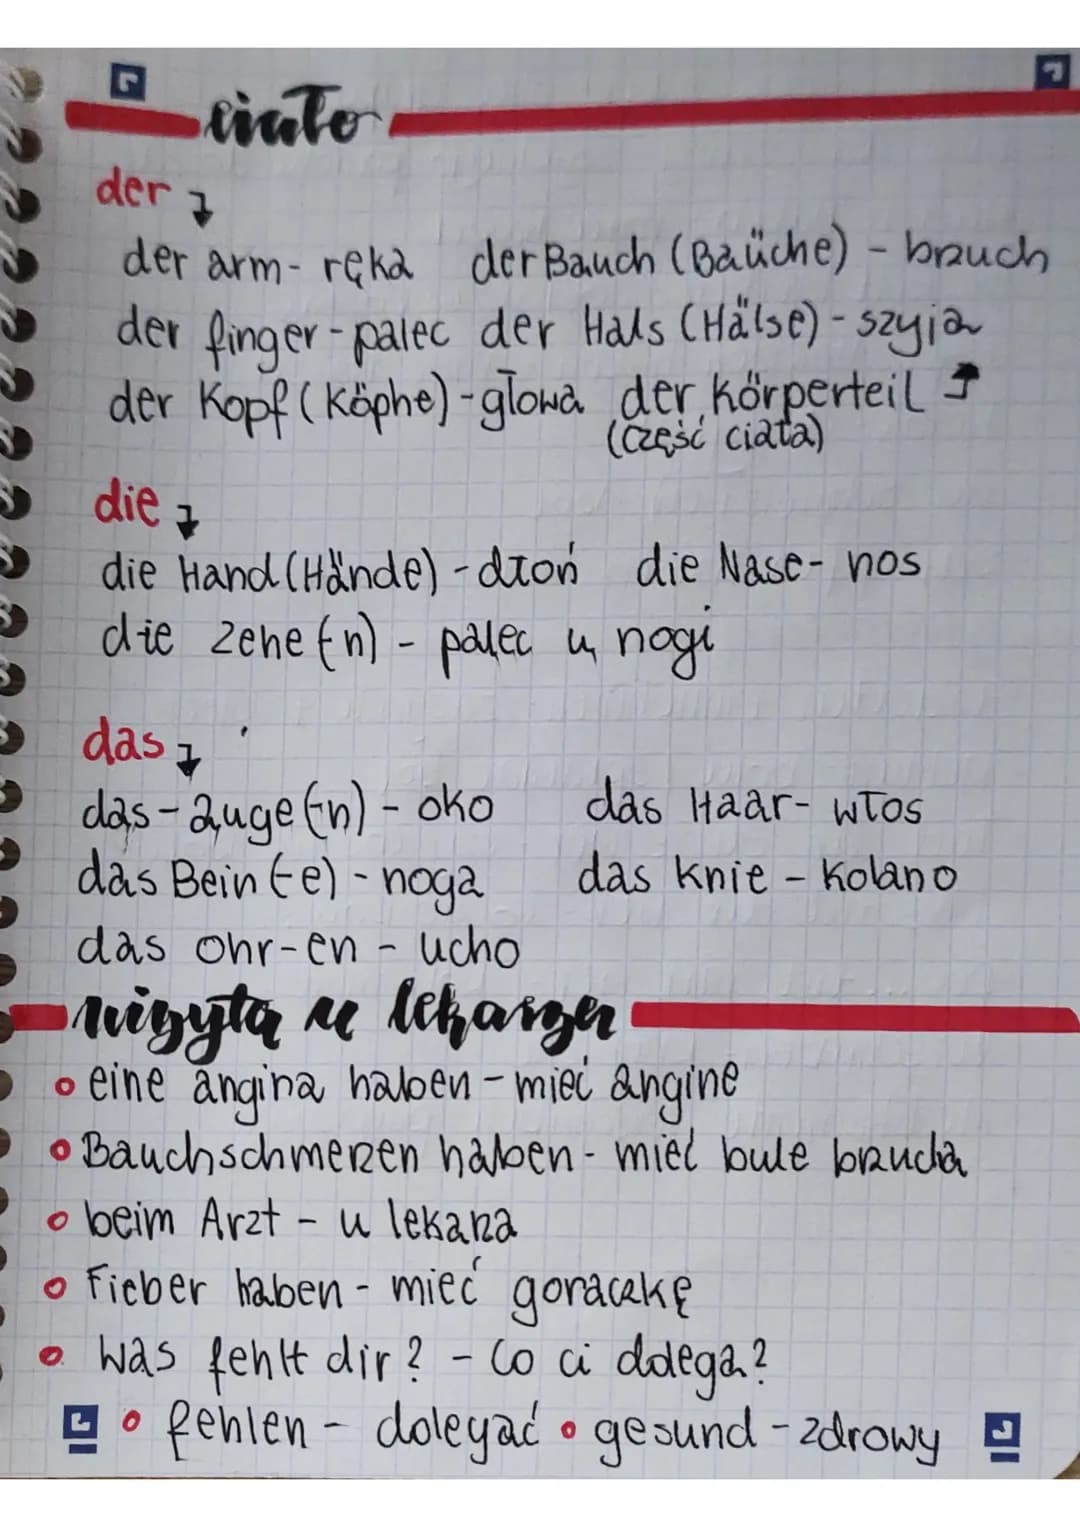 ciało
der
der arm - ręka der Bauch (Baüche) - brzuch
der finger - palec der Hals (Hälse) - szyja
der Kopf (Köphe) - głowa der körperteil
(część ciała)
die
die Hand (Hände) - dłoń die Nase - nos
die Zehe (-n) - palec u nogi
das
das - auge (-n) - oko das Haar - włos
das Bein (-e) - noga das knie - kolano
das ohr-en - ucho
wizyta u lekarza
eine angina haben - mieć angine
Bauchschmerzen haben - mieć bule brzucha
beim Arzt - u lekarza
Fieber haben - mieć goraczkę
was fehlt dir? - Co ci dolega?
fehlen - dolegać gesund - zdrowy